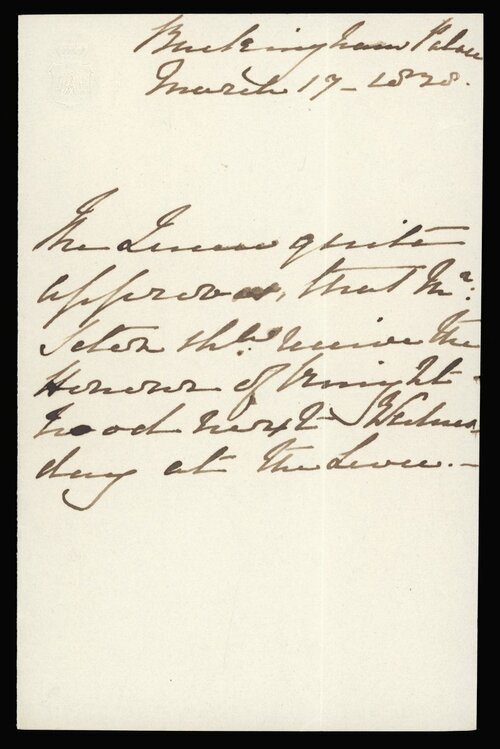 Buckingham Palace
March 17 - 1838.
The Queen quite
approves, that Mr.
Seton shld. receive the
Honour of Knight-
hood next Wednes-
day at the Levee. -